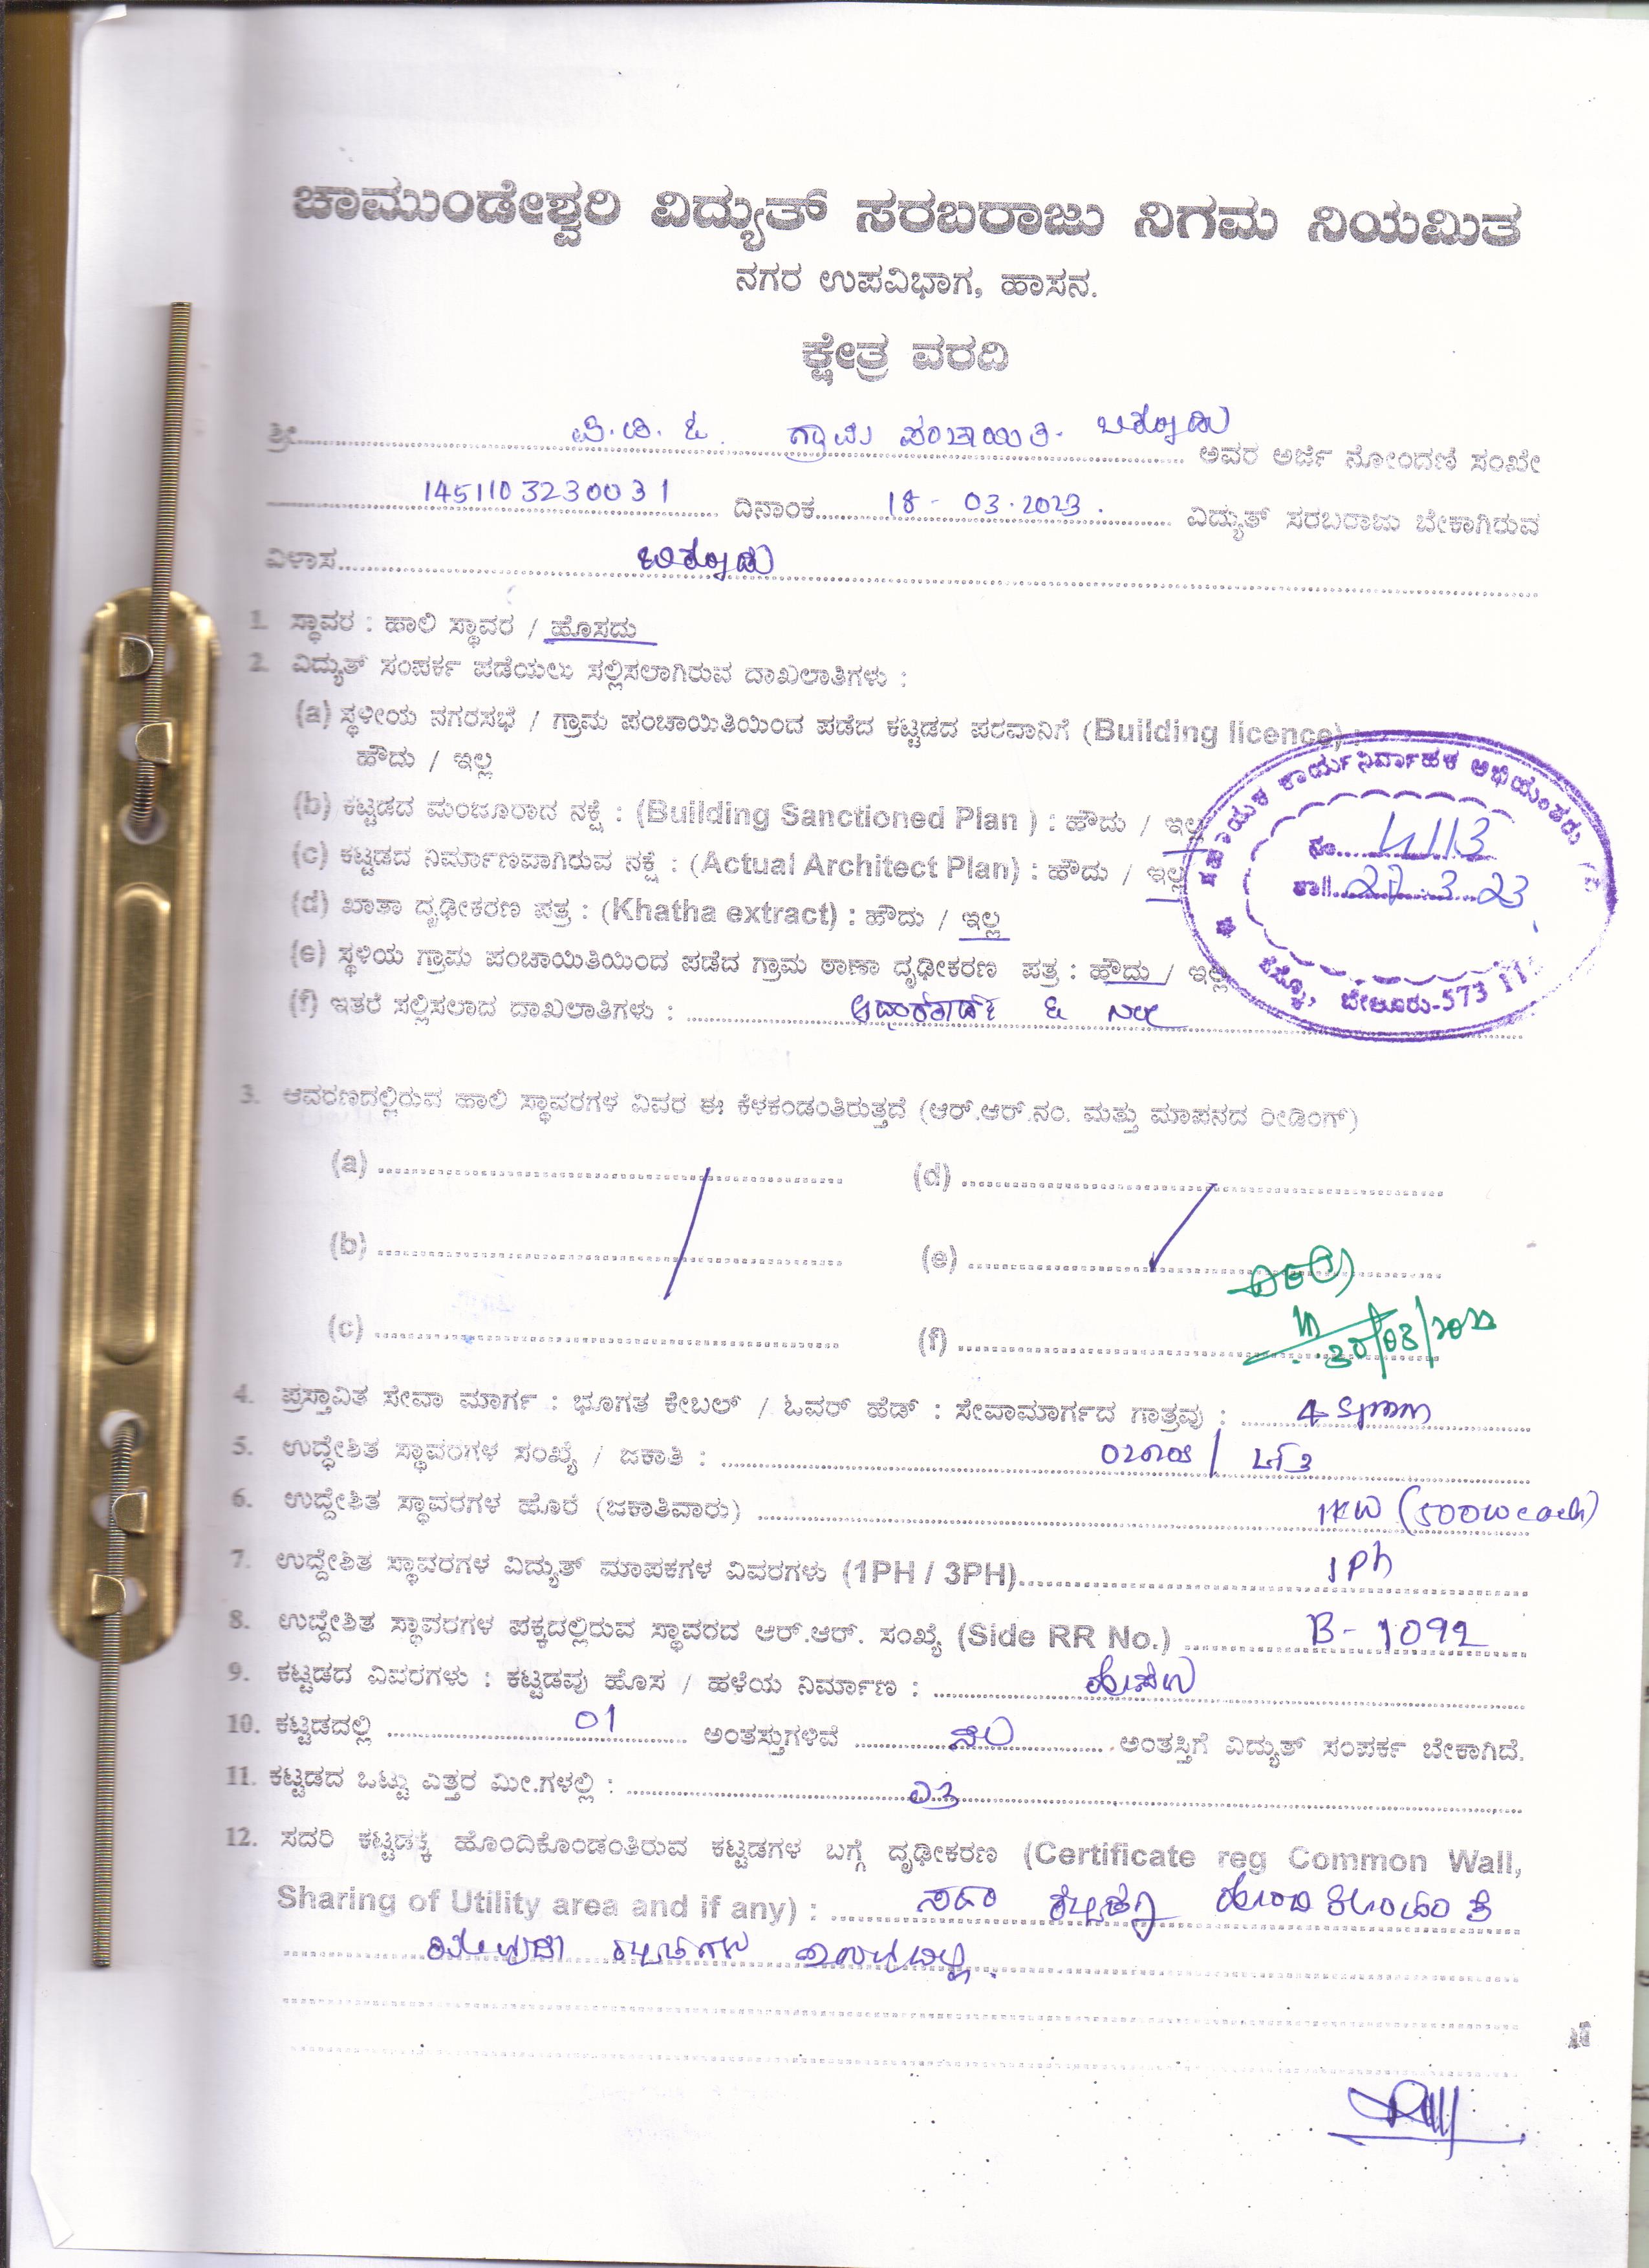 ಚಾಮುಂಡೇಶ್ವರಿ ವಿದ್ಯುತ್ ಸರಬರಾಜು ನಿಗಮ ನಿಯಮಿತ
ನಗರ ಉಪವಿಭಾಗ, ಹಾಸನ.
ಕ್ಷೇತ್ರ ವರದಿ
ಶ್ರೀ ಪಿ.ಡಿ.ಓ. ಗ್ರಾಮ ಪಂಚಾಯಿತಿ. ಅವರ ಅರ್ಜಿ ನೋಂದಣಿ ಸಂಖೇ
1451103230031 ದಿನಾಂಕ 18-03.2023. ವಿದ್ಯುತ್ ಸರಬರಾಜು ಬೇಕಾಗಿರುವ
ವಿಳಾಸ
1. ಸ್ಥಾವರ : ಹಾಲಿ ಸ್ಥಾವರ / ಹೊಸದು
2. ವಿದ್ಯುತ್ ಸಂಪರ್ಕ ಪಡೆಯಲು ಸಲ್ಲಿಸಲಾಗಿರುವ ದಾಖಲಾತಿಗಳು :
(a) ಸ್ಥಳೀಯ ನಗರಸಭೆ / ಗ್ರಾಮ ಪಂಚಾಯಿತಿಯಿಂದ ಪಡೆದ ಕಟ್ಟಡದ ಪರವಾನಿಗೆ (Building licence) :
ಹೌದು / ಇಲ್ಲ
(b) ಕಟ್ಟಡದ ಮಂಜೂರಾದ ನಕ್ಷೆ : (Building Sanctioned Plan ) : ಹೌದು / ಇಲ್ಲ
(c) ಕಟ್ಟಡದ ನಿರ್ಮಾಣವಾಗಿರುವ ನಕ್ಷೆ : (Actual Architect Plan) : ಹೌದು / ಇಲ್ಲ
(d) ಖಾತಾ ದೃಢೀಕರಣ ಪತ್ರ : (Khatha extract) : ಹೌದು / ಇಲ್ಲ
(e) ಸ್ಥಳಿಯ ಗ್ರಾಮ ಪಂಚಾಯಿತಿಯಿಂದ ಪಡೆದ ಗ್ರಾಮ ಠಾಣಾ ದೃಢೀಕರಣ ಪತ್ರ : ಹೌದು / ಇಲ್ಲ
(f) ಇತರೆ ಸಲ್ಲಿಸಲಾದ ದಾಖಲಾತಿಗಳು :
ಸಹಾಯಕ ಕಾರ್ಯನಿರ್ವಾಹಕ ಅಭಿಯಂತರು
ನಂ. 4113
ದಿ|| 27.3.23
ಬೇಲೂರು-573
3. ಆವರಣದಲ್ಲಿರುವ ಹಾಲಿ ಸ್ಥಾವರಗಳ ವಿವರ ಈ ಕೆಳಕಂಡಂತಿರುತ್ತದೆ (ಆರ್.ಆರ್.ನಂ. ಮತ್ತು ಮಾಪನದ ರೀಡಿಂಗ್)
(a) (d)
(b) (e)
(c) (f)
4. ಪ್ರಸ್ತಾವಿತ ಸೇವಾ ಮಾರ್ಗ : ಭೂಗತ ಕೇಬಲ್ / ಓವರ್ ಹೆಡ್ : ಸೇವಾಮಾರ್ಗದ ಗಾತ್ರವು : 4 Sqmm
5. ಉದ್ಧೇಶಿತ ಸ್ಥಾವರಗಳ ಸಂಖ್ಯೆ / ಜಕಾತಿ :
6. ಉದ್ದೇಶಿತ ಸ್ಥಾವರಗಳ ಹೊರೆ (ಜಕಾತಿವಾರು) 1KW (500W each)
7. ಉದ್ದೇಶಿತ ಸ್ಥಾವರಗಳ ವಿದ್ಯುತ್ ಮಾಪಕಗಳ ವಿವರಗಳು (1PH / 3PH) 1Ph
8. ಉದ್ದೇಶಿತ ಸ್ಥಾವರಗಳ ಪಕ್ಕದಲ್ಲಿರುವ ಸ್ಥಾವರದ ಆರ್.ಆರ್. ಸಂಖ್ಯೆ (Side RR No.) B-1092
9. ಕಟ್ಟಡದ ವಿವರಗಳು : ಕಟ್ಟಡವು ಹೊಸ / ಹಳೆಯ ನಿರ್ಮಾಣ :
10. ಕಟ್ಟಡದಲ್ಲಿ 01 ಅಂತಸ್ತುಗಳಿವೆ ನೆಲ ಅಂತಸ್ತಿಗೆ ವಿದ್ಯುತ್ ಸಂಪರ್ಕ ಬೇಕಾಗಿದೆ.
11. ಕಟ್ಟಡದ ಒಟ್ಟು ಎತ್ತರ ಮೀ.ಗಳಲ್ಲಿ :
12. ಸದರಿ ಕಟ್ಟಡಕ್ಕೆ ಹೊಂದಿಕೊಂಡಂತಿರುವ ಕಟ್ಟಡಗಳ ಬಗ್ಗೆ ದೃಢೀಕರಣ (Certificate reg Common Wall,
Sharing of Utility area and if any) : ಸದರಿ ಕಟ್ಟಡಕ್ಕೆ ಹೊಂದಿಕೊಂಡಂತೆ
ಯಾವುದೇ ಕಟ್ಟಡಗಳು ಇರುವುದಿಲ್ಲ.